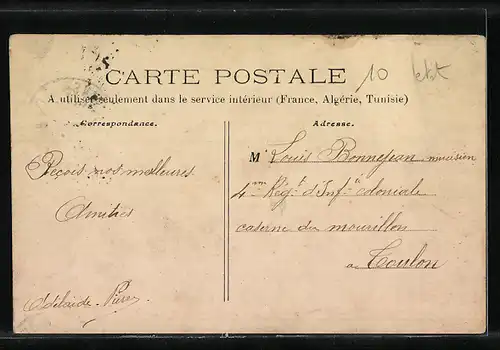 CARTE POSTALE
10
A utiliser seulement dans le service intérieur (France, Algérie, Tunisie)
Correspondance.
Adresse.
Reçois nos meilleures
Amitiés
Adélaïde
M Louis Bonnejean musicien
4me Régt d'Infie coloniale
caserne du mourillon
a Toulon